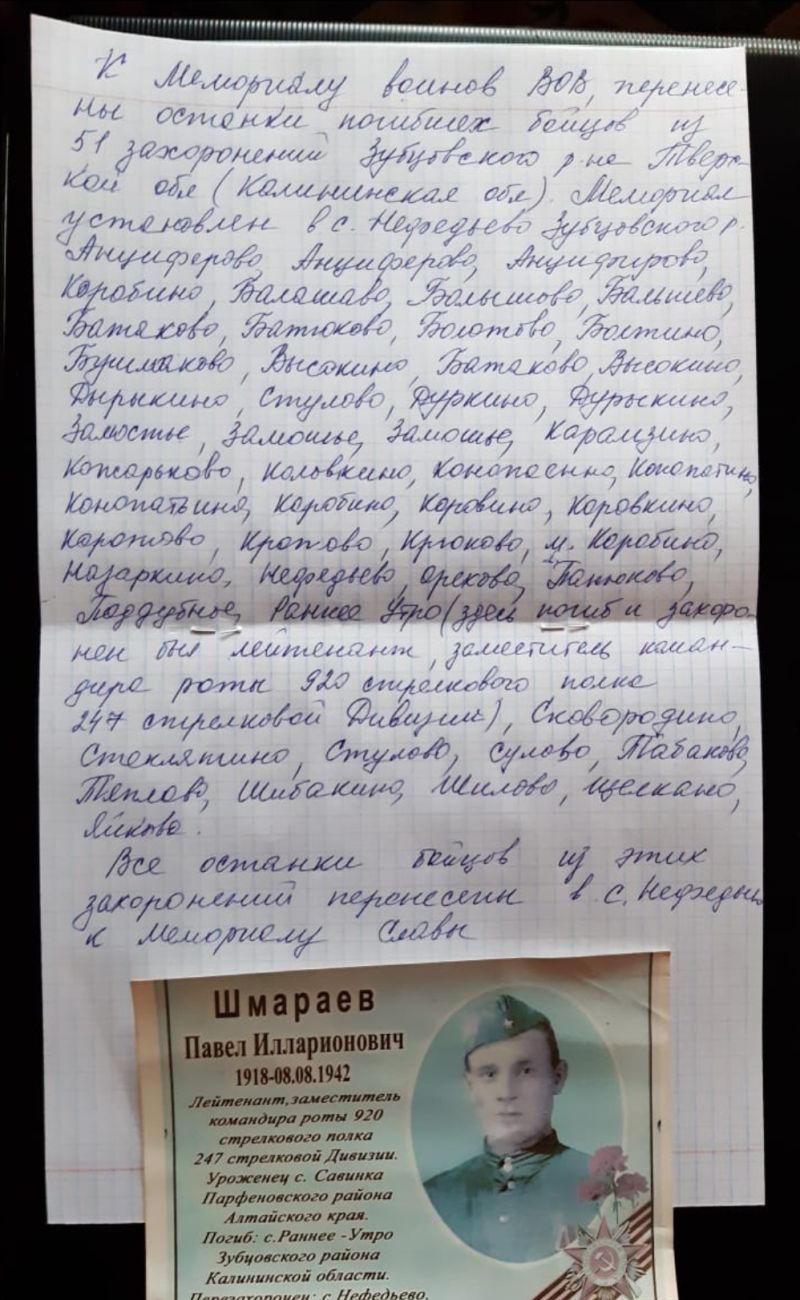 К Мемориалу воинов ВОВ, перенесе-
ны останки погибших бойцов из
51 захоронений Зубцовского р-на Тверс-
кой обл (Калининская обл). Мемориал
установлен в с. Нефедьево Зубцовского р.
Анциферово, Анциферово, Анцифирово,
Коробино, Балашаво, Болышово, Балышево,
Батаково, Батюково, Болотово, Болтино,
Бурмаково, Высокино, Батаково, Высокино,
Дырыкино, Стулово, Дуркино, Дурыкино,
Замостье, Замошье, Замошье, Карамзино,
Кожарьково, Коловкино, Конопасено, Конопатино,
Конопатьино, Коробино, Коровино, Коровкино,
Каротово, Кротово, Крюково, м. Коробино,
Назаркино, Нефедьево, Орехово, Панюково,
Поддубное, Раннее Утро (здесь погиб и захоро-
нен был лейтенант, заместитель коман-
дира роты 920 стрелкового полка
247 стрелковой Дивизии), Сковородино,
Стеклятино, Стулово, Сулово, Табаково,
Тяплово, Шибакино, Шилово, Щеекано,
Яйково.
Все останки бойцов из этих
захоронений перенесены в с. Нефедьево
к Мемориалу Славы
Шмараев
Павел Илларионович
1918-08.08.1942
Лейтенант,заместитель
командира роты 920
стрелкового полка
247 стрелковой Дивизии.
Уроженец с. Савинка
Парфеновского района
Алтайского края.
Погиб: с.Раннее -Утро
Зубцовского района
Калининской области.
Перезахоронен: с.Нефедьево,